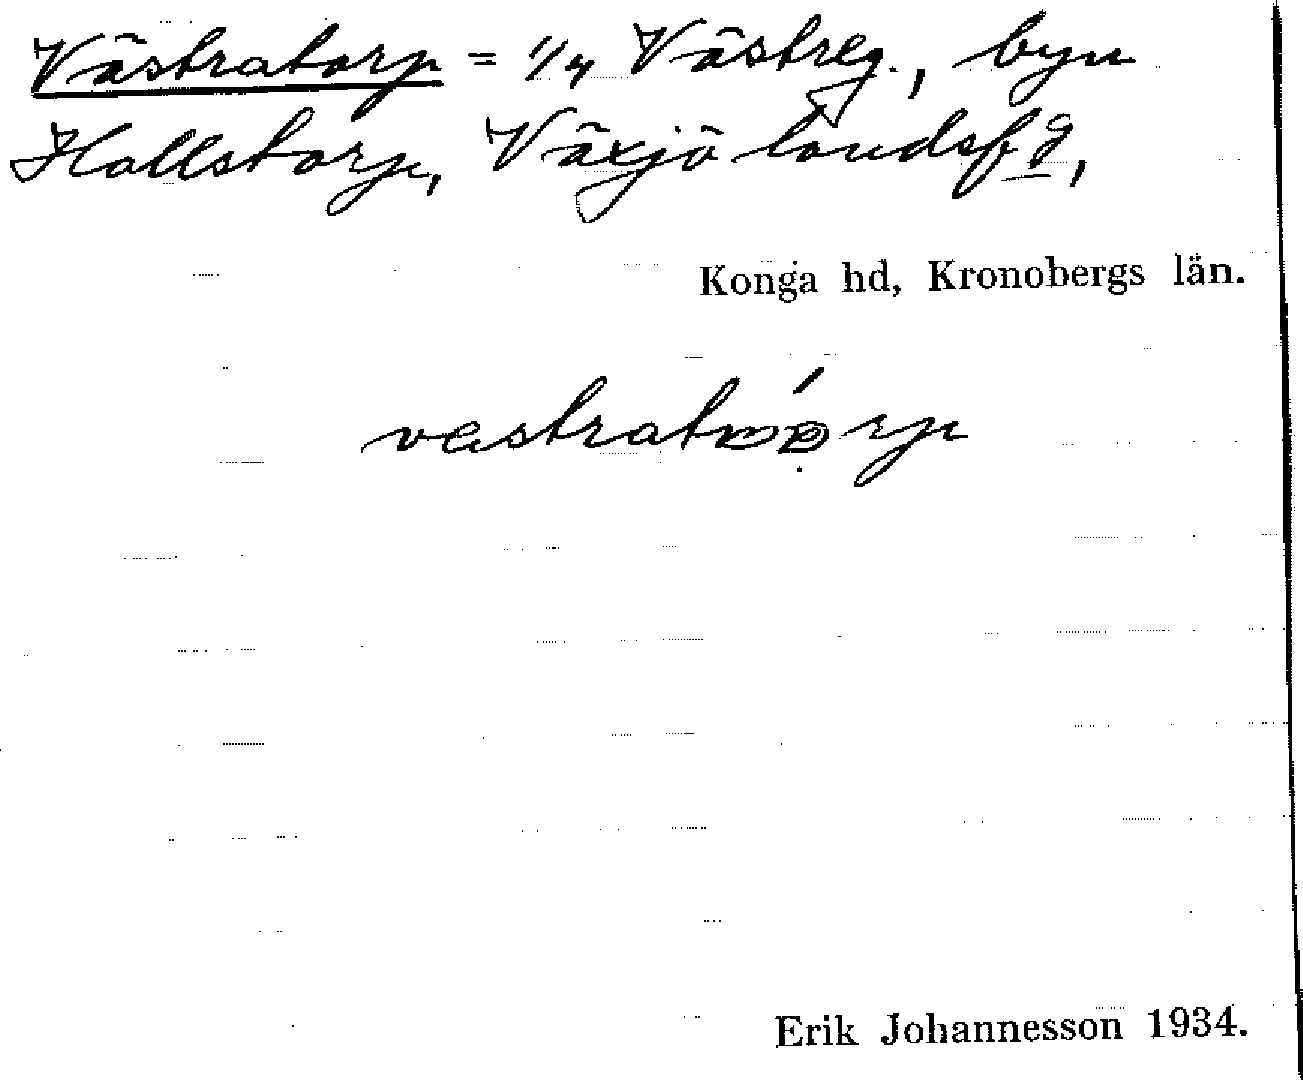 Västratorp = 1/4 Västreg., byn
Hallstorp, Växjö landsfg,
Konga hd, Kronobergs län.
Erik Johannesson 1934.